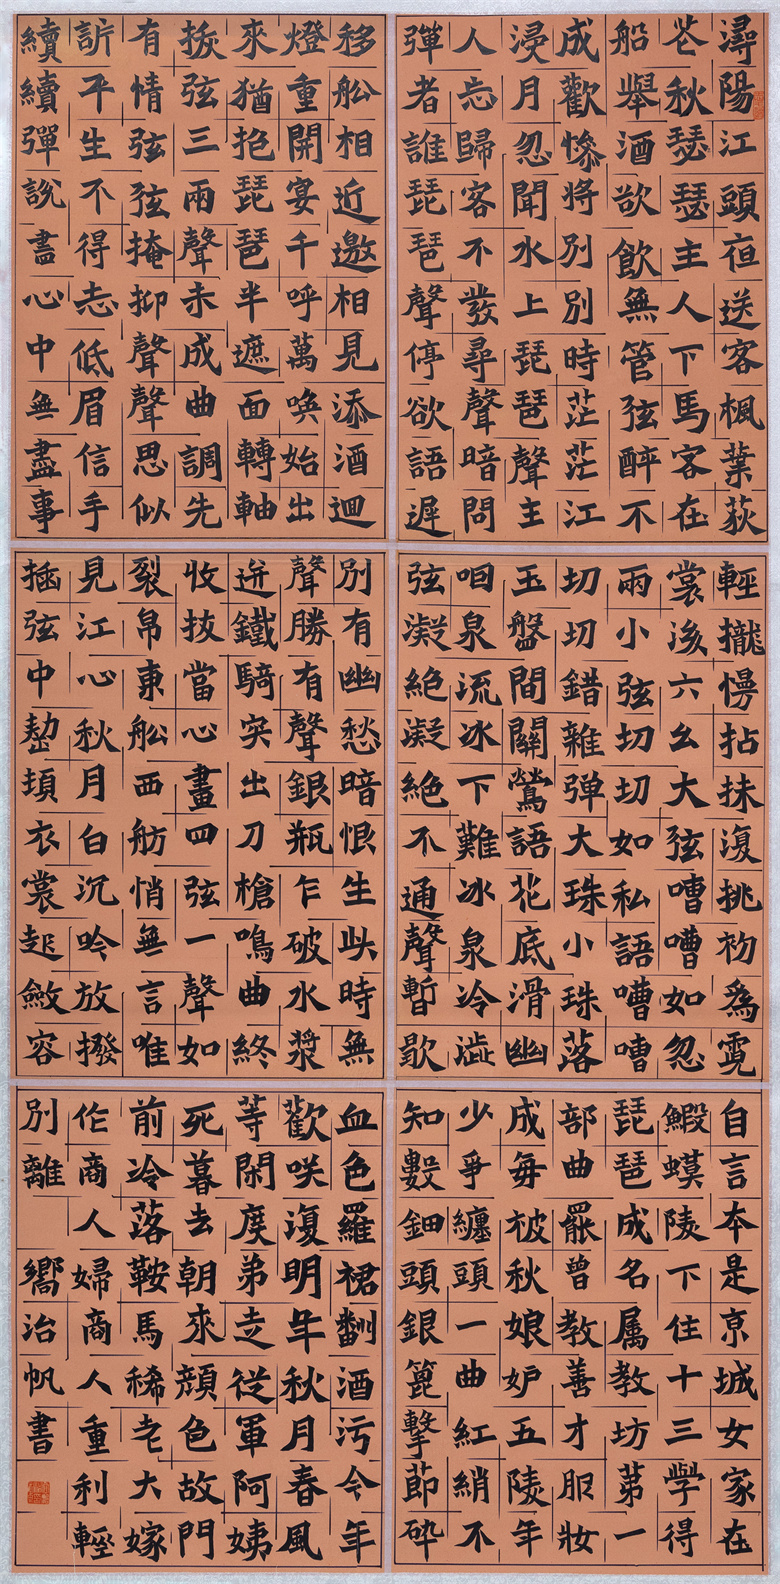 潯陽江頭夜送客楓葉荻
花秋瑟瑟主人下馬客在
船舉酒欲飲無管弦醉不
成歡慘將別別時茫茫江
浸月忽聞水上琵琶聲主
人忘歸客不發尋聲暗問
彈者誰琵琶聲停欲語遲
移船相近邀相見添酒迴
燈重開宴千呼萬喚始出
來猶抱琵琶半遮面轉軸
撥弦三兩聲未成曲調先
有情弦弦掩抑聲聲思似
訴平生不得志低眉信手
續續彈說盡心中無盡事
輕攏慢拈抹復挑初為霓
裳後六幺大弦嘈嘈如急
雨小弦切切如私語嘈嘈
切切錯雜彈大珠小珠落
玉盤間關鶯語花底滑幽
咽泉流冰下難冰泉冷澀
弦凝絕凝絕不通聲暫歇
別有幽愁暗恨生此時無
聲勝有聲銀瓶乍破水漿
迸鐵騎突出刀槍鳴曲終
收撥當心畫四弦一聲如
裂帛東船西舫悄無言唯
見江心秋月白沉吟放撥
插弦中整頓衣裳起斂容
自言本是京城女家在
蝦蟆陵下住十三學得
琵琶成名屬教坊第一
部曲罷曾教善才服妝
成每被秋娘妒五陵年
少爭纏頭一曲紅綃不
知數鈿頭銀篦擊節碎
血色羅裙翻酒污今年
歡笑復明年秋月春風
等閑度弟走從軍阿姨
死暮去朝來顏色故門
前冷落鞍馬稀老大嫁
作商人婦商人重利輕
別離 嚮治帆書